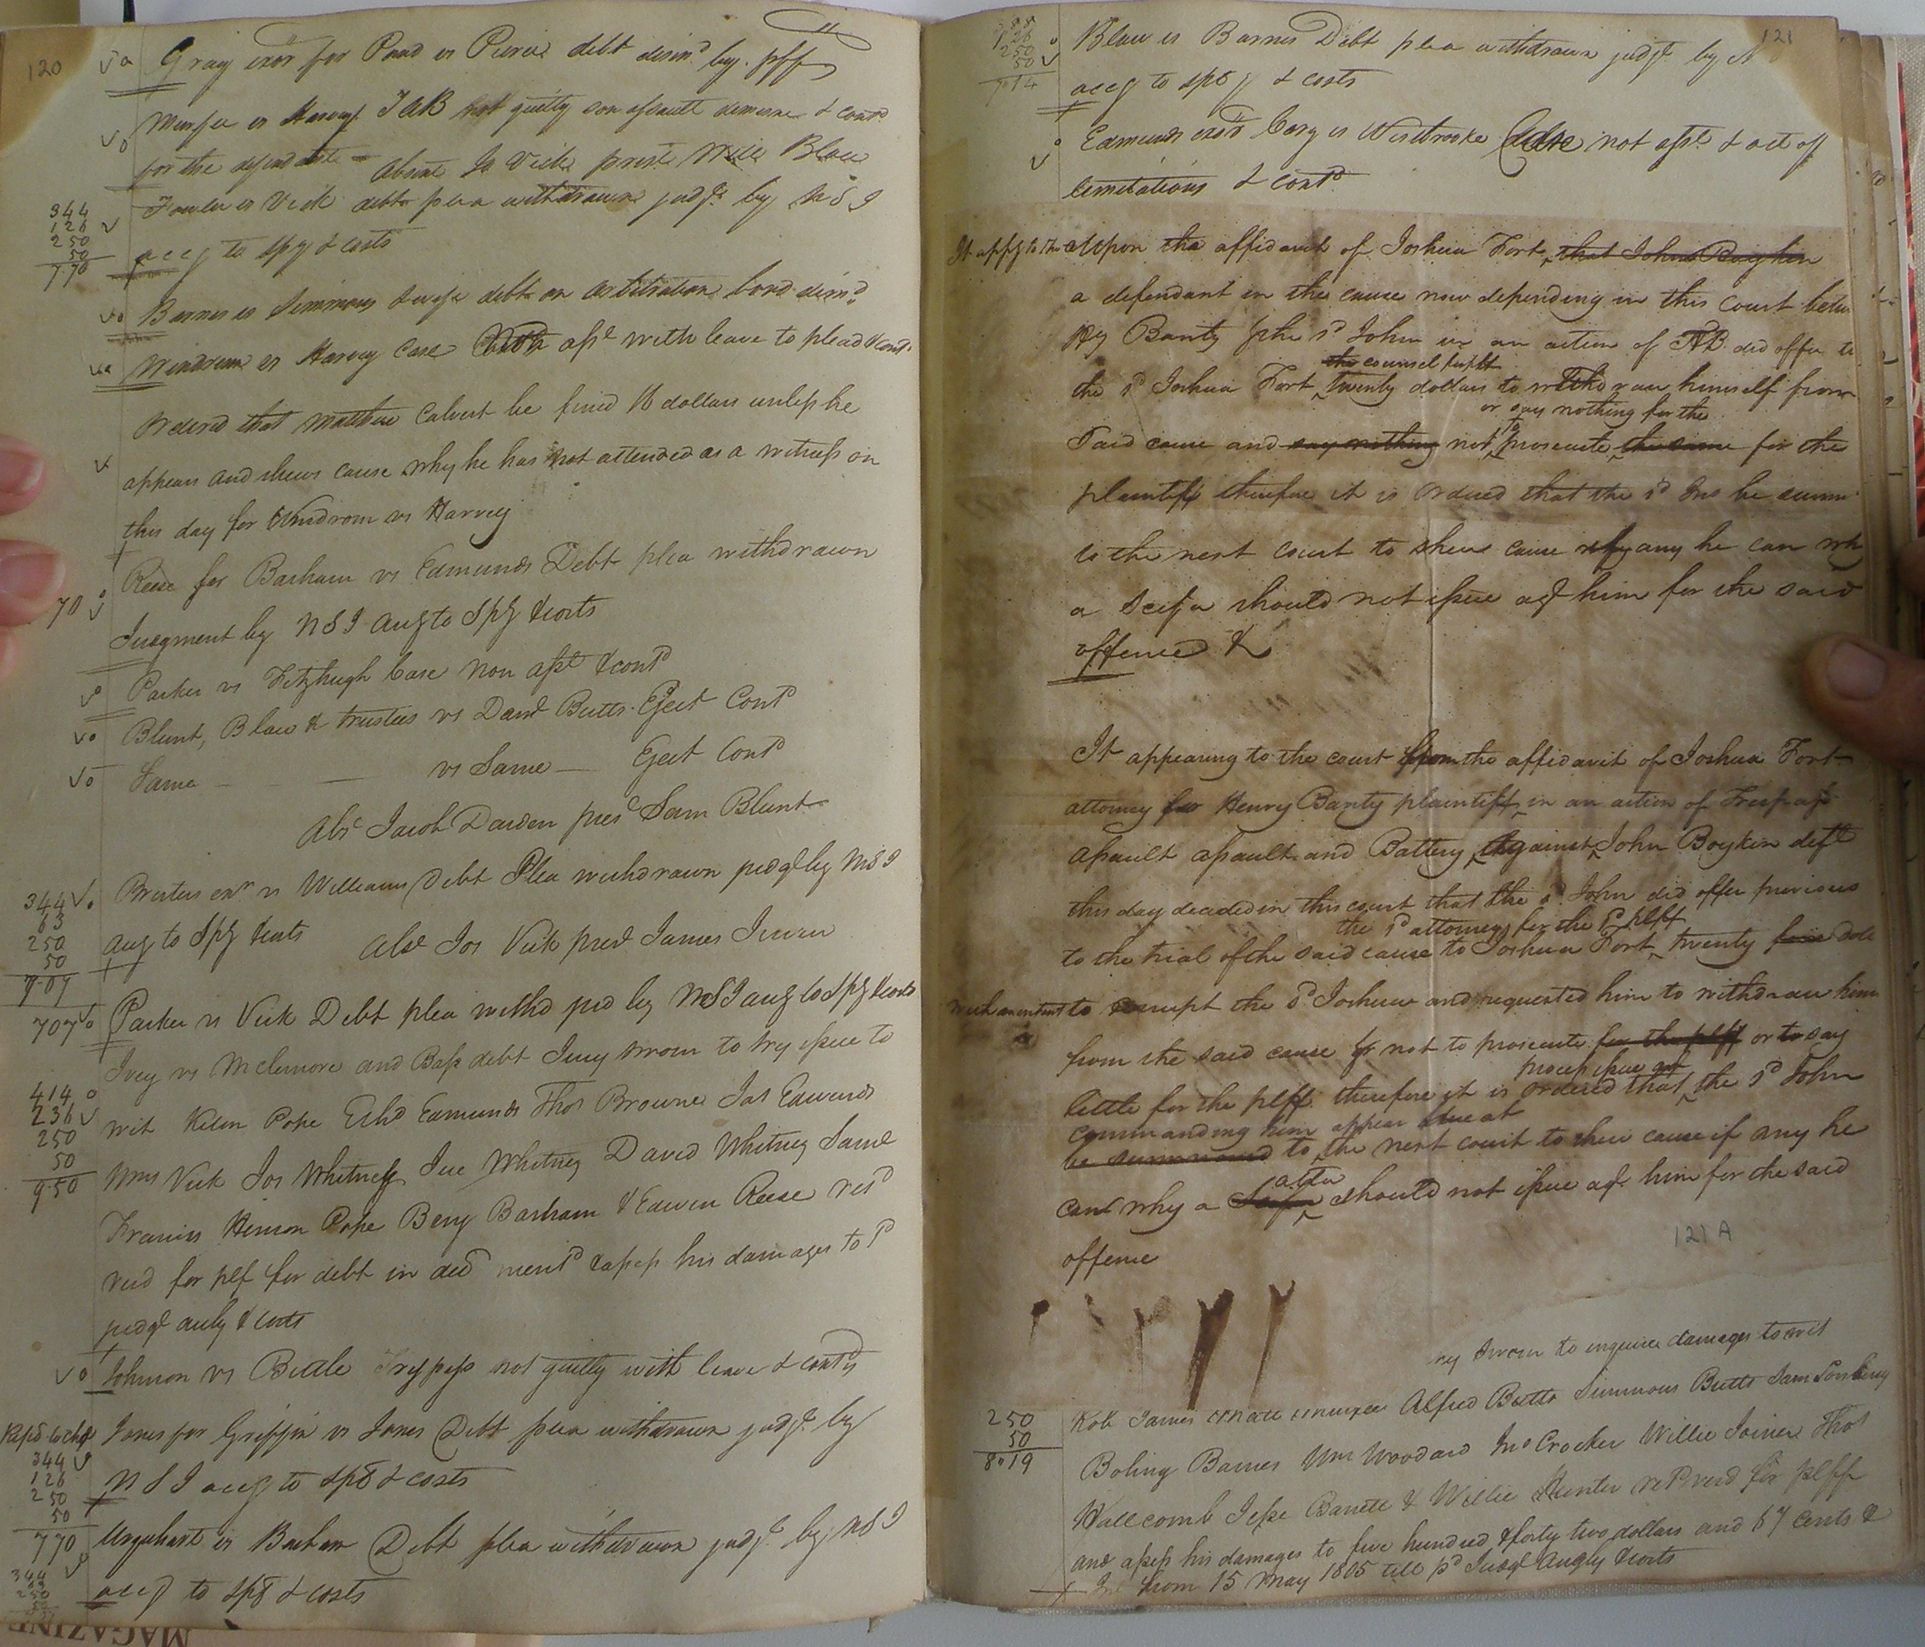 120
Gray exor for Pond vs Pierce debt dism'd by plff
vs Harvey TAB not guilty son assault demesne & cont'd
for the defendant absent Jo Vick pres't Will Blow
Fowler vs Vick debt plea withdrawn judgt by N S I
344
126
250
50
770
accg to spy & costs
Barnes vs Simmons & wife debt on arbitration bond dism'd
Windrom vs Harvey Case Non asst with leave to plead & cont'd
Ordered that Matthew Calvert be fined 16 dollars unless he
appears and shews cause why he has not attended as a witness on
this day for Windrom vs Harvey
Reese for Barham vs Edmunds Debt plea withdrawn
70
Judgment by N S I accg to Spy & costs
Parker vs Fitzhugh Case Non asst & cont'd
Blunt, Blow & trustees vs Danl Butts Eject Cont'd
Same vs Same Eject Cont'd
Abst Jacob Darden prest Sam Blunt
exr vs Williams Debt Plea withdrawn judgt by N S I
344
63
250
50
707
accg to Spy & costs Abst Jos Vick prest James
Parker vs Vick Debt plea withd jud by N S I accg to Spy & costs
707
Ivey vs McLemore and Bass debt Jury sworn to try issue to
414
236
250
50
950
wit Pope Edmunds Thos Browne Jas Edwards
Wm Vick Jos Whitney Whitney David Whitney Saml
Francis Henson Pope Benj Barham & Edwin Reese ret'd
verd for plf for debt in decl ment'd & assess his damages to 1d
judgt accly & costs
Johnson vs Beale Trespass not guilty with leave & cont'd
Jones for Griffin vs Jones Debt plea withdrawn judgt by
344
126
250
50
770
N S I accg to spy & costs
Urquhart vs Barham Debt plea withdrawn judgt by N S I
344
63
250
accg to spy & costs
MAGAZINE
121
126
250
50
714
Blow vs Barnes Debt plea withdrawn judgt by N
accg to spy & costs
Edmunds exor's Cary vs Westbrooke Case not asst & act of
limitations & cont'd
It appg to the Upon the affidavit of Joshua Fort that John Boykin
a defendant in the cause now depending in this court betw
Hy Banty & the sd John in an action of TAB did offer to
the counsel for plt
the sd Joshua Fort twenty dollars to withdraw himself from
or say nothing for the
said cause and say nothing not to prosecute the same for the
plaintiff therefore it is ordered that the sd Jno be summ
to the next court to shew cause if any he can why
a Scifa should not issue agt him for the said
offence &
It appearing to the court from the affidavit of Joshua Fort
attorney for Henry Banty plaintiff in an action of Trespass
assault assault and Battery against John Boykin deft
this day decided in this court that the sd John did offer previous
the sd attorney for the plft
to the trial of the said cause to Joshua Fort twenty dolls
with an intent to corrupt the sd Joshua and requested him to withdraw him
from the said cause & not to prosecute for the plff or to say
process issue
little for the plff therefore it is ordered that the sd John
commanding him appear at
be summoned to the next court to shew cause if any he
atta
can why a Scifa should not issue agt him for the said
offence
121 A
sworn to enquire damages to wit
250
50
8.19
Robt James Alfred Butts Simmons Butts Sam
Boling Barnes Wm Woodard Jno Crocker Willie Joiner Thos
Hallcomb Jesse Barrett & Willie Hunter ret verd for plff
and assess his damages to five hundred & forty two dollars and 57 cents &
Int from 15 May 1805 till pd Judgt accgly & costs